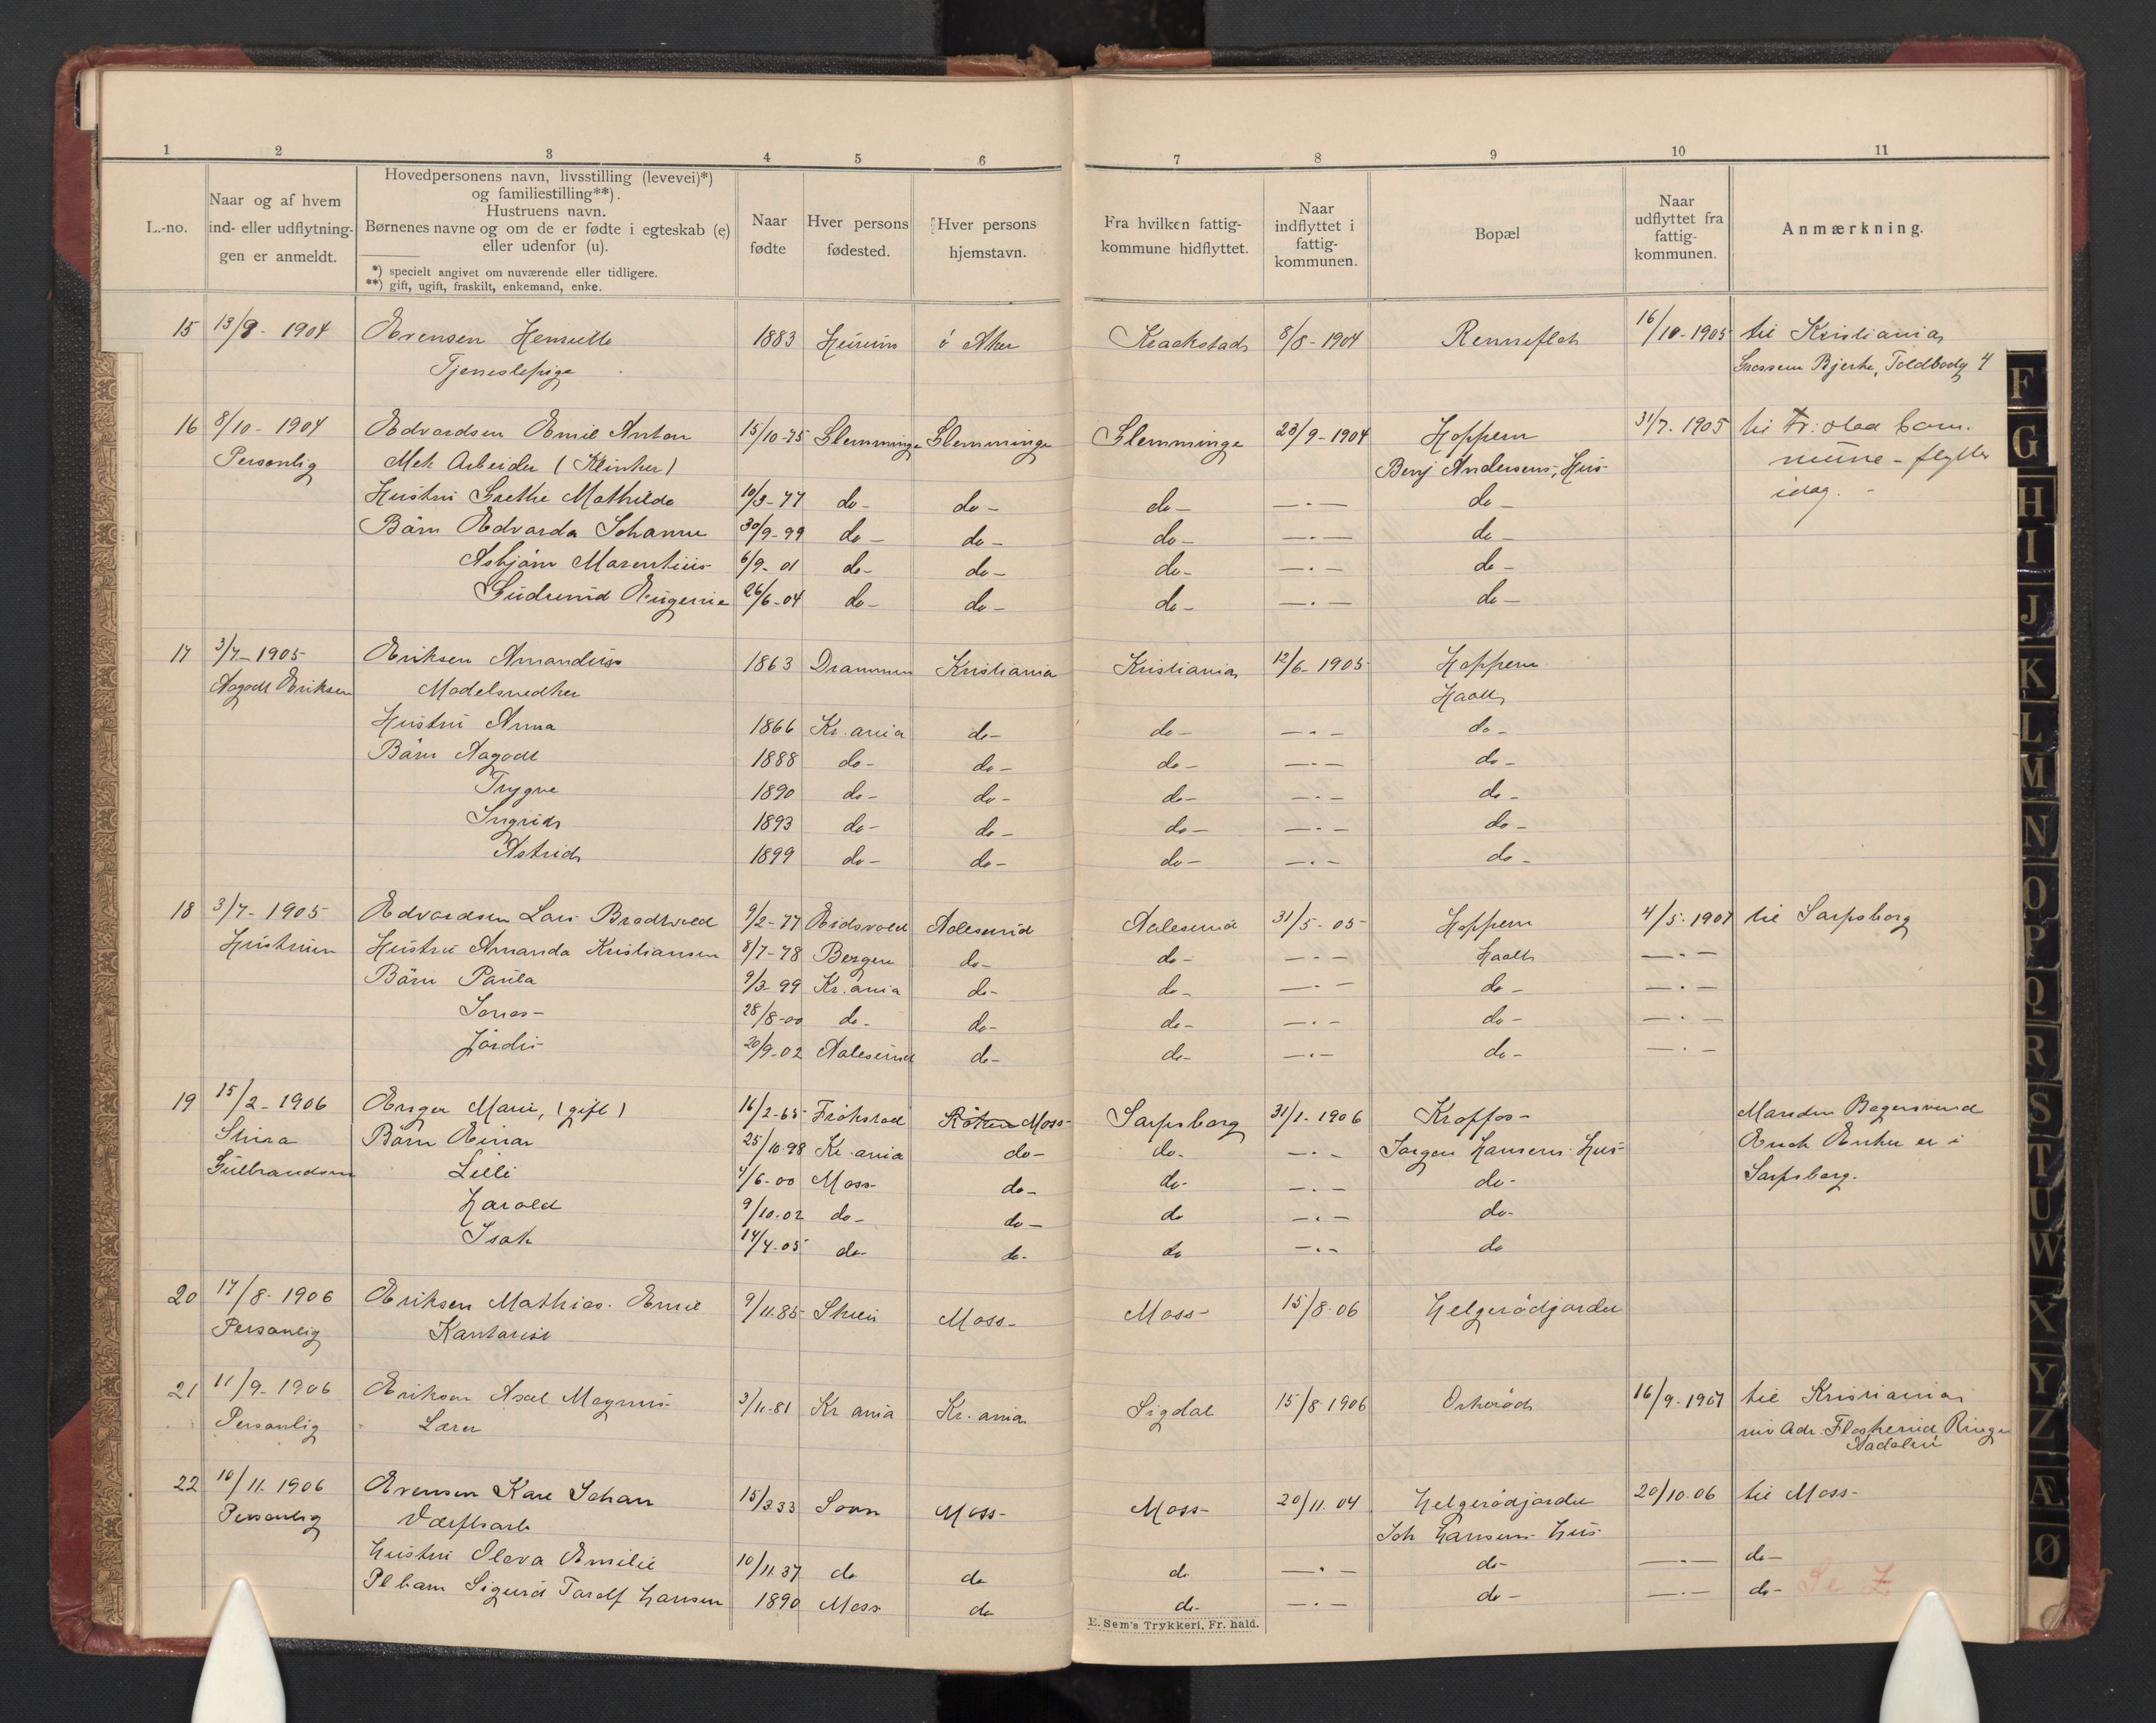 1 2 3 4 5 6 7 8 9 10 11
L.-no.
Naar og af hvem
ind- eller udflytnin-
gen er anmeldt.
Hovedpersonens navn, livsstilling (levevei)*)
og familiestilling**).
Hustruens navn.
Børnenes navne og om de er fødte i egteskab (e)
eller udenfor (u).
*) specielt angivet om nuværende eller tidligere.
**) gift, ugift, fraskilt, enkemand, enke.
Naar
fødte
Hver persons
fødested.
Hver persons
hjemstavn.
Fra hvilken fattig-
kommune hidflyttet.
Naar
indflyttet i
fattig-
kommunen.
Bopæl
Naar
udflyttet fra
fattig-
kommunen.
Anmærkning.
15 13/9- 1904 Evensen 1883 Hurum i Aker Kraakstad 8/8-1904 Renneflot 16/10-1905 til Kristiania
Tjenestepige Bjerke, Toldbodg 4
16 8/10- 1904 Edvardsen Emil Anton 15/10-75 Glemminge Glemminge Glemminge 23/9-1904 Hoppern 31/7. 1905 til Fr:stad kom.
Personlig Mek Arbeider (Klinker) Benj Andersens Hus mune - flytter
Hustru Grethe Mathilde 10/3-77 do- do- do- —.— do- idag.-
Børn Edvarda Johanne 30/9-99 do- do- do- —.— do-
Asbjørn Marentius 6/9-01 do- do- do- —.— do-
Gudrund Eugenie 26/6-04 do- do- do- —.— do-
17 3/7-1905 Eriksen Amandus 1863 Drammen Kristiania Kristiania 12/6-1905 Hoppern
Aagodt Eriksen Modelsnedker
Hustru Anna 1866 Kr.ania do- do- —.— do-
Børn Aagodt 1888 do- do- do- —.— do-
Trygve 1890 do- do- do- —.— do-
Ingrid 1893 do- do- do- —.— do-
Astrid 1899 do- do- do- —.— do-
18 3/7-1905 Edvardsen Lars 9/2-77 Eidsvold Aalesund Aalesund 31/5-05 Hoppern 4/5.1907 til Sarpsborg
Hustruen Hustru Amanda Kristiansen 8/7-78 Bergen do- do- —.— —.—
Børn Paula 9/3-99 Kr.ania do- do- —.— do- —.—
Jonas 28/8-00 do- do- do- —.— do- —.—
Jørdis 20/9-02 Aalesund do- do- —.— do- —.—
19 15/2-1906 Enger Marie, (gift) 16/2-65 Moss Sarpsborg 31/1-1906 Kropfos Manden
Børn Einar 25/10.98 Kr.ania do- do- —.— Jørgen Hansens Hus er i
Gulbrandsen Lilli 4/6-00 Moss do- do- —.— do- Sarpsborg.
Harald 9/10.02 do- do- do —.— do-
Isak 14/4-05 do- do- do —.— do
20 17/8-1906 Eriksen Mathias Emil 9/11.85 Skien Moss Moss 15/8.06 Helgerødjordet
Personlig Kantorist
21 11/9-1906 Eriksen Axel Magnus 3/11.81 Kr ania Kr.ania Sigdal 15/8.1906 Orkerød 16/9.1907 til Kristiania
Personlig Lærer nu Adr. Ringe
Aadalen
22 10/11.1906 Evensen Karl Johan 15/3 33 Soon Moss Moss 20/11.04 Helgerødjordet 20/10.06 til Moss
Personlig Værftsarb Joh Hansens Hus
Hustru Oleva Emilie 10/11.37 do do do —.— do- —.— do-
Pl barn Sigurd Torolf Hansen 1890 Moss do do- —.— do- —.— do- Se Z
E. Sem's Trykkeri, Fr. hald.
F
G
H
I
J
K
L
M
N
O
P
Q
R
S
T
U
W
X
Y
Z
Æ
Ø